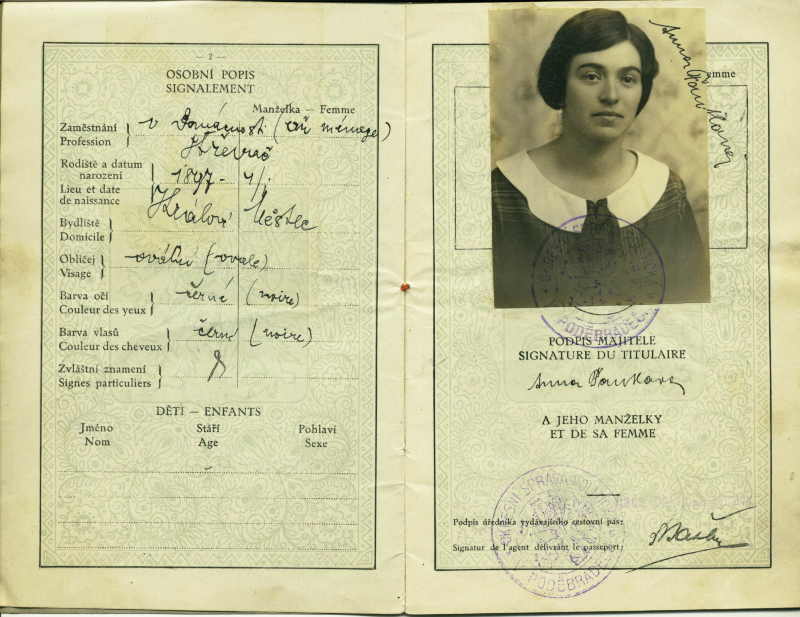 — 2 —
OSOBNÍ POPIS
SIGNALEMENT
Manželka — Femme
Zaměstnání
Profession
v Domácnosti (au ménage)
Rodiště a datum
narození
Lieu et date
de naissance
1897 -
Bydliště
Domicile
Králové Městec
Obličej
Visage
oválný (ovale)
Barva očí
Couleur des yeux
černé (noire)
Barva vlasů
Couleur des cheveux
černé (noire)
Zvláštní znamení
Signes particuliers
DĚTI — ENFANTS
Jméno Stáří Pohlaví
Nom Age Sexe
Femme
Anna
PODĚBRADECH
PODPIS MAJITELE
SIGNATURE DU TITULAIRE
Anna
A JEHO MANŽELKY
ET DE SA FEMME
OKRESNÍ SPRÁVA POLITICKÁ
Podpis úředníka vydávajícího cestovní pas:
Signatur de l'agent délivrant le passeport:
PODĚBRADECH